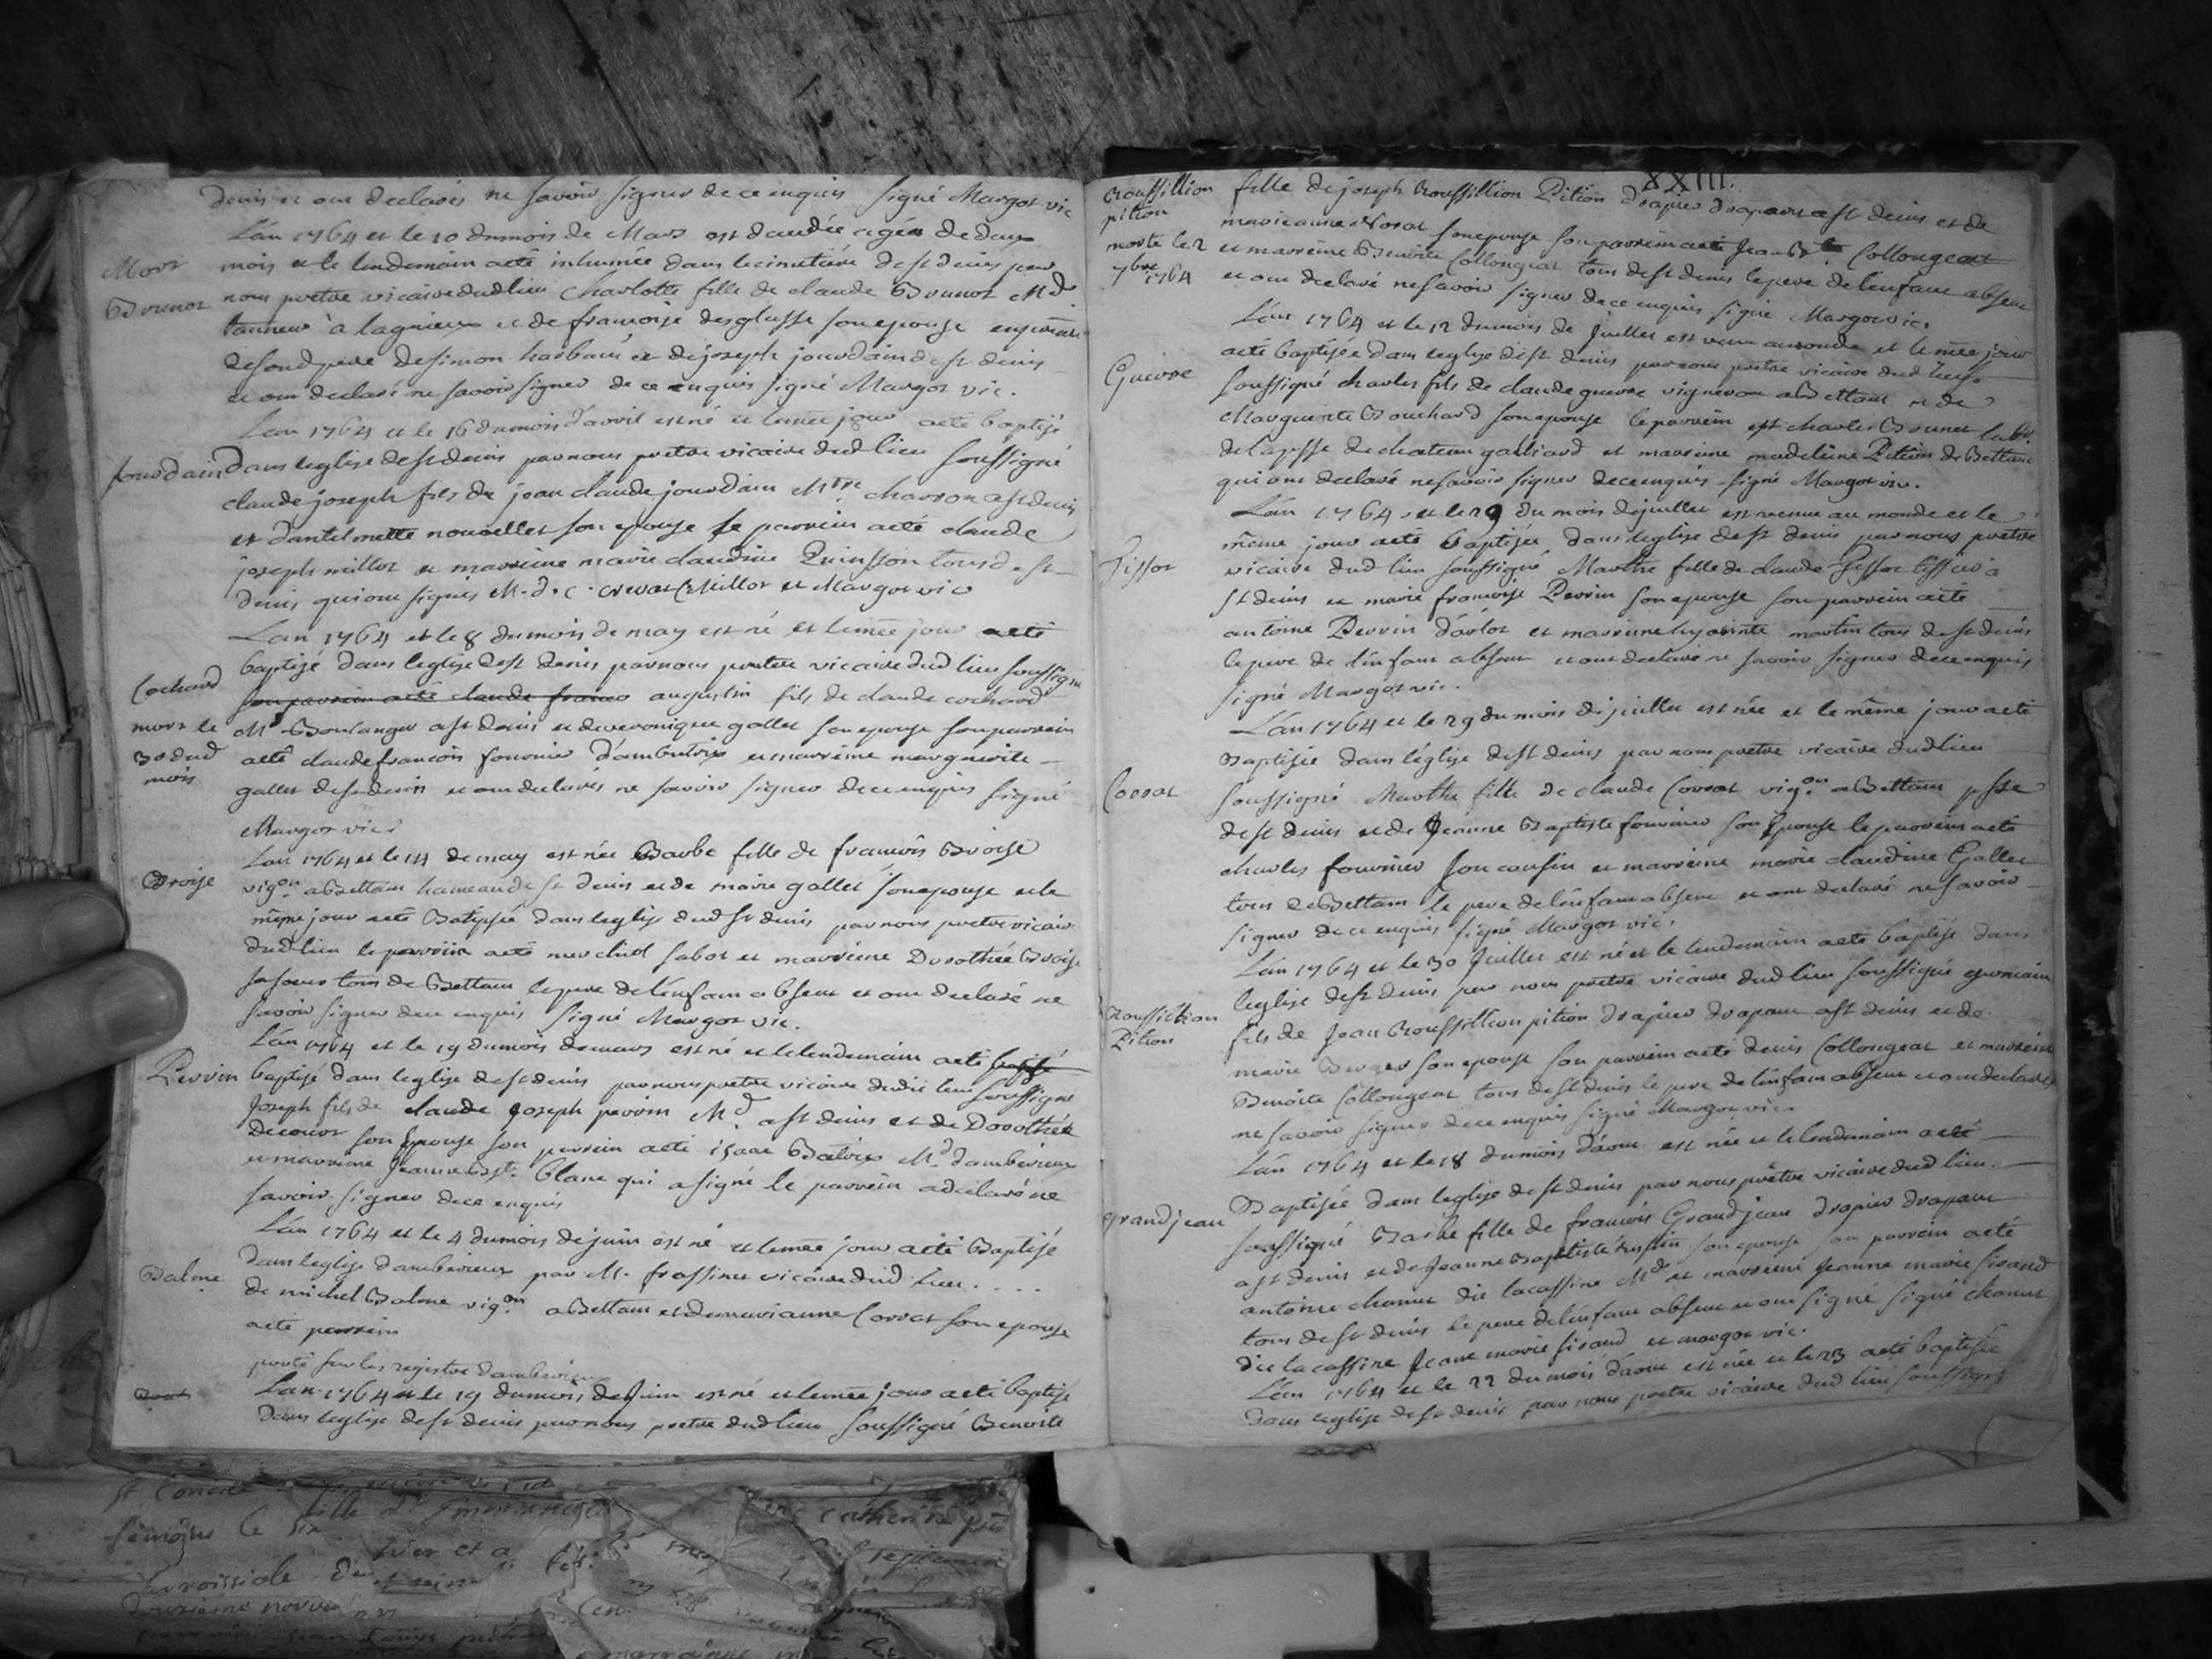 denis et ont declarés ne savoir signer de ce enquis signé Margot vic
L'an 1764 et le 10 du mois de Mars est decedée agée de deux
Mort mois et le lendemain a eté inhumée dans le cimetiere de st denis par
Brunot nous pretre vicaire dud lieu Charlotte fille de claude Brunot Md
tanneur à lagnieux et de francoise desglasse son epouse en presence
de son d pere de simon et de joseph jourdain de st denis
et ont declaré ne savoir signer de ce enquis signé Margot vic.
Lan 1764 et le 16 du mois d'avril est né et le mee jour a eté baptisé
Jourdain dans leglise de st denis par nous pretre vicaire dud lieu soussigné
claude joseph fils de jean claude jourdain Mtre charron a st denis
et d'antelmette nouvellet son epouse le parrein a eté claude
joseph millot et marreine marie claudine Quinsson tous de st
denis qui ont signés M. d. c. Millot et Margot vic
Lan 1764 et le 8 du mois de may est né et le mee jour a eté
baptisé dans leglise de st denis par nous pretre vicaire dud lieu soussigné
Cochard son parrein a eté claude franco augustin fils de claude cochard
mort le Md Boulanger a st denis et de veronique gallet son epouse son parrein
30 dud a eté claude francois fournier d'ambutrix et marreine marguerite
mois gallet de st denis et ont declarés ne savoir signer de ce enquis signé
Margot vic
Lan 1764 et le 14 de may est née Barbe fille de francois Broise
Broise vigon a Bettant hameau de st denis et de marie gallet son epouse et le
même jour a eté Batissée dans leglise dud st denis par nous pretre vicaire
dud lieu le parrein a eté sabot et marreine Dorothée Broise
sa soeur tous de Bettant le pere de lenfant absent et ont declaré ne
savoir signer de ce enquis signé Margot vic.
L'an 1764 et le 19 du mois de mars est né et le lendemain a eté
Perrin baptisé dans leglise de st denis par nous pretre vicaire dudit lieu soussigné
Joseph fils de claude Joseph perrin Md a st denis et de Dorothée
decourt son Epouse son parrein a eté isaac Batrix Md d'amberieux
et marreine Jeanne Bte Blanc qui a signé le parrein a declaré ne
savoir signer de ce enquis
L'an 1764 et le 4 du mois de juin est né et le mee jour a eté Baptisé
dans leglise d'amberieux par M. frassinet vicaire dud lieu . . . .
Balme de michel Balme vigon a Bettant et de marianne Corrat son epouse
a eté parrein
porté sur les registre d'amberieux
Lan 1764 et le 19 du mois de Juin est né et le mee jour a eté baptisé
dans leglise de st denis par nous pretre dud lieu soussigné Benoite
XXIII.
Roussillion fille de joseph Roussillion Pition drapier drapant a st denis et de
pition marie anne son epouse son parrein a eté Jean Bte Collongeat
morte le 2 et marreine Benoite Collongeat tous de st denis le pere de lenfant absent
7bre 1764 et ont declaré ne savoir signer de ce enquis signé Margot vic.
L'an 1764 et le 12 du mois de juillet est venu au monde et le mee jour
a eté baptisée dans leglise de st denis par nous pretre vicaire dud lieu
Guerre soussigné charles fils de claude guerre vigneron a Bettant et de
Marguerite Bouchard son epouse le parrein est charles Brunet labr
de la psse de chateau gaillard et marreine madeleine Pition de Bettant
qui ont declaré ne savoir signer de ce enquis signé Margot vic.
L'an 1764 et le 29 du mois de juillet est venue au monde et le
même jour a eté baptisée dans leglise de st denis par nous pretre
vicaire dud lieu soussigné Marthe fille de claude tissier a
st denis et marie francoise Perrin son epouse son parrein a eté
antoine Perrin d'arlot et marreine hyacinte martin tous de st denis
le pere de l'enfant absent et ont declaré ne savoir signer de ce enquis
signé Margot vic.
L'an 1764 et le 29 du mois de juillet est née et le même jour a eté
Baptisée dans l'église de st denis par nous pretre vicaire dud lieu
Corrat soussigné Marthe fille de claude Corrat vigon a Bettant psse
de st denis et de Jeanne Baptiste fournier son Epouse le parrein a eté
charles fournier son cousin et marreine marie claudine Gallet
tous de Bettant le pere de lenfant absent et ont declaré ne savoir
signer de ce enquis signé Margot vic.
L'an 1764 et le 30 Juillet est né et le lendemain a eté baptisé dans
leglise de st denis par nous pretre vicaire dud lieu soussigné germain
Roussillion fils de Jean Roussillion pition drapier drapant a st denis et de
Pition marie Berger son epouse son parrein a eté denis Collongeat et marreine
Benoite Collongeat tous de st denis le pere de lenfant absent et ont declaré
ne savoir signer de ce enquis signé Margot vic.
L'an 1764 et le 18 du mois d'aout est née et le lendemain a eté
Baptisée dans leglise de st denis par nous pretre vicaire dud lieu
grandjean soussigné Barbe fille de francois Grandjean drapier drapant
a st denis et de Jeanne Baptiste son epouse son parrein a eté
antoine chanut dit lacassine Md et marreine Jeanne marie sirand
tous de st denis le pere de lenfant absent et ont signé signé chanut
dit lacassine Jeanne marie sirand et margot vic.
L'an 1764 et le 22 du mois d'aout est née et le 23 a eté baptisée
dans leglise de st denis par nous pretre vicaire dud lieu soussigné